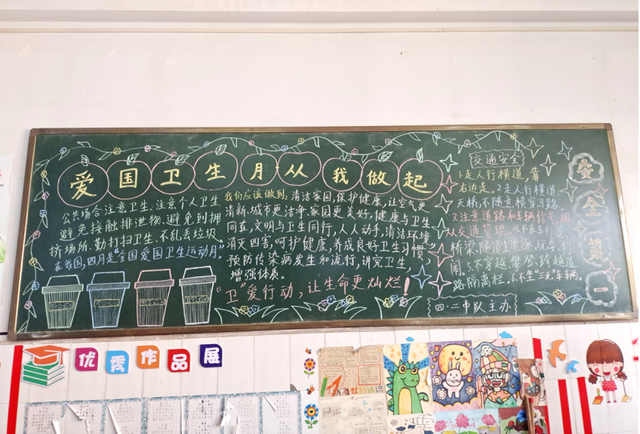 爱国卫生月从我做起
公共场合注意卫生,注意个人卫生
避免接触排泄物,避免到拥
挤场所,勤打扫卫生,不乱丢垃圾
在我国,四月是“全国爱国卫生运动月”
我们应该做到:清洁家园,保护健康,让空气更
清新,城市更洁净,家园更美好,健康与卫生
同在,文明与卫生同行,人人动手,清洁环境
消灭四害,呵护健康,养成良好卫生习惯
预防传染病发生和流行,讲究卫生
增强体质。
“卫”爱行动,让生命更灿烂!
交通安全
1.走人行横道,靠
右边走,2.走人行横道,
天桥,不随意横穿马路
3.注意道路和车辆信号,服
从交通管理
桥梁,隧道
闹,5.不穿越,攀登,跨越道
路隔离栏,6.不坐“三无”车辆,
四.二中队主办
安全第一
优秀作品展